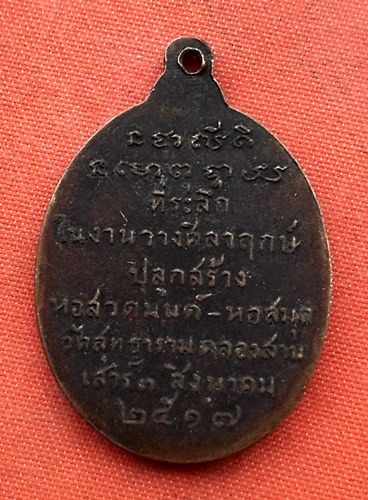 ที่ระลึก
ในงานวางศิลาฤกษ์
ปลูกสร้าง
หอสวดมนต์-หอสมุด
วัดสุทธาราม คลองสาน
เสาร์ ๓ สิงหาคม
๒๕๑๗